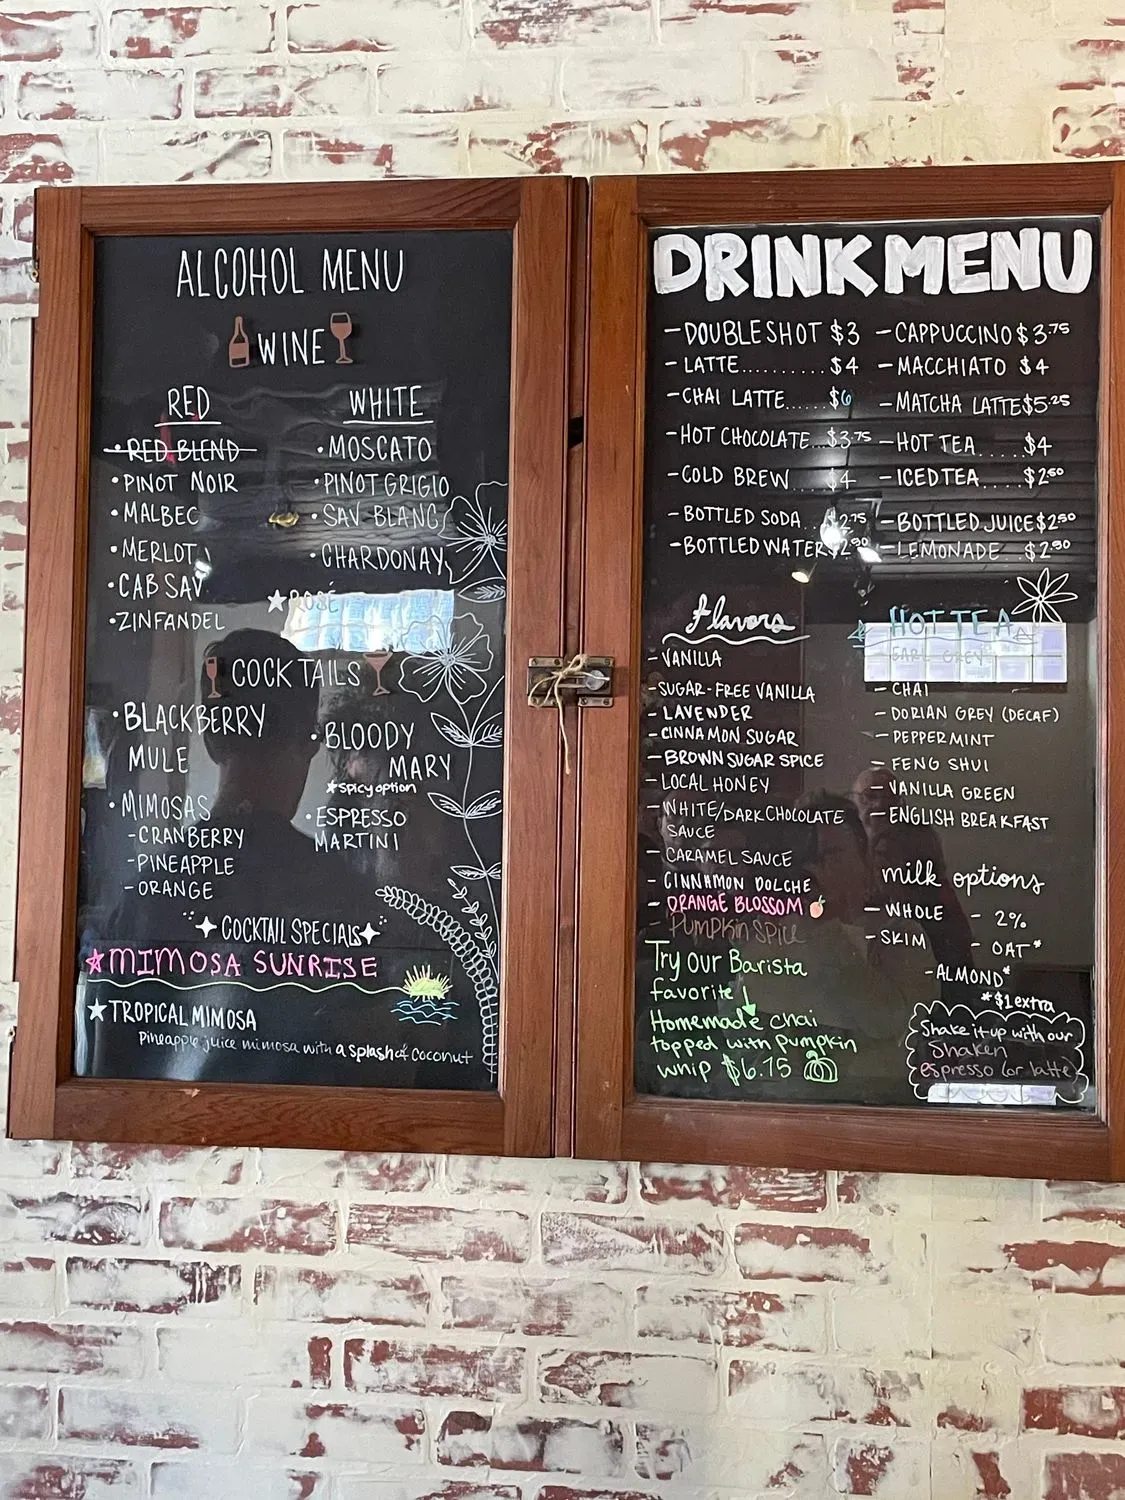 ALCOHOL MENU
WINE
RED
• RED BLEND
• PINOT NOIR
• MALBEC
• MERLOT
• CAB SAV
• ZINFANDEL
WHITE
• MOSCATO
• PINOT GRIGIO
• SAV BLANC
• CHARDONAY
★ ROSÉ
COCKTAILS
• BLACKBERRY
MULE
• MIMOSAS
- CRANBERRY
- PINEAPPLE
- ORANGE
• BLOODY
MARY
★spicy option
• ESPRESSO
MARTINI
COCKTAIL SPECIALS
★MIMOSA SUNRISE
★TROPICAL MIMOSA
Pineapple juice mimosa with a splash of coconut
DRINK MENU
- DOUBLESHOT $3
- LATTE.......... $4
- CHAI LATTE...... $6
- HOT CHOCOLATE... $3.75
- COLD BREW.... $4
- BOTTLED SODA.. $2.75
- BOTTLED WATER $2.00
- CAPPUCCINO $3.75
- MACCHIATO $4
- MATCHA LATTE $5.25
- HOT TEA.... $4
- ICED TEA.... $2.50
- BOTTLED JUICE $2.50
- LEMONADE... $2.90
Flavors
- VANILLA
- SUGAR-FREE VANILLA
- LAVENDER
- CINNAMON SUGAR
- BROWN SUGAR SPICE
- LOCAL HONEY
- WHITE/DARK CHOCOLATE
SAUCE
- CARAMEL SAUCE
- CINNAMON DOLCHE
- ORANGE BLOSSOM
- Pumpkin Spice
Try our Barista
favorite
Homemade chai
topped with pumpkin
whip $6.75
HOT TEA
- EARL GREY
- CHAI
- DORIAN GREY (DECAF)
- PEPPERMINT
- FENG SHUI
- VANILLA GREEN
- ENGLISH BREAKFAST
milk options
- WHOLE - 2%
- SKIM - OAT*
- ALMOND*
*$1 extra
Shake it up with our
Shaken
espresso (or latte)